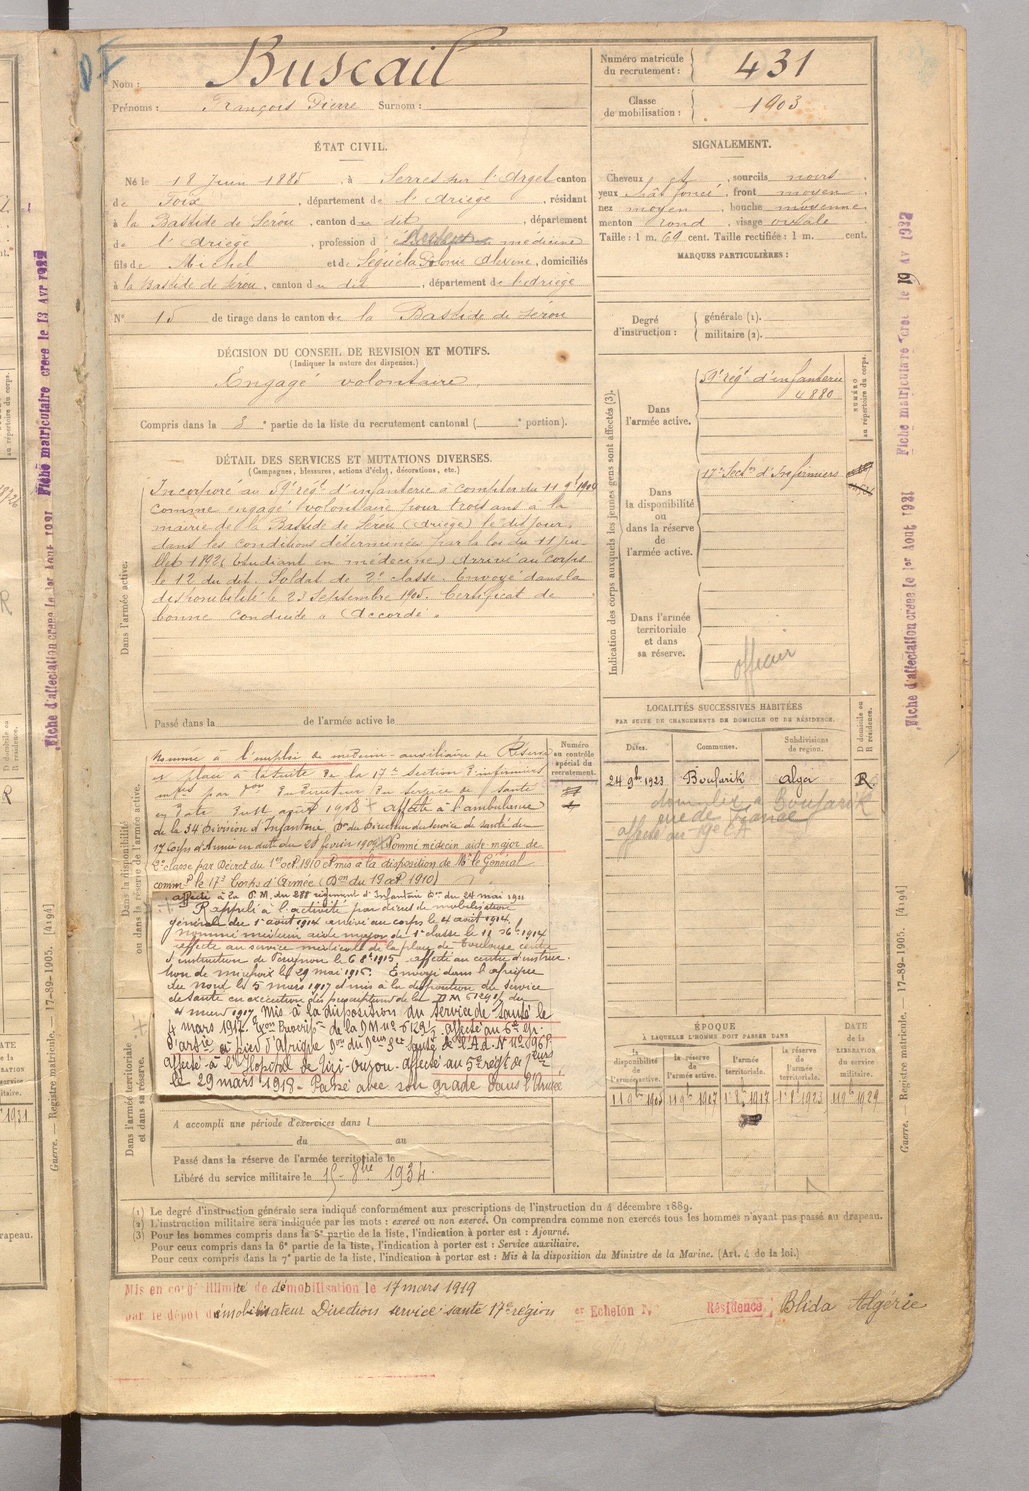 Nom : Buscail
Prénoms : François Pierre Surnom :
Numéro matricule du recrutement : 431
Classe de mobilisation : 1903
ÉTAT CIVIL.
Né le 18 Juin 1885, à Serres sur l'Arget canton
de Foix, département de l'Ariège, résidant
à la Bastide de Sérou, canton du dit, département
de l'Ariège, profession d'étudiant en médecine
fils de Michel et de domiciliés
à la Bastide de Sérou, canton du dit, département de l'Ariège
N° 15 de tirage dans le canton de la Bastide de Sérou
SIGNALEMENT.
Cheveux et, sourcils noirs,
yeux chât foncé, front moyen,
nez moyen, bouche moyenne,
menton rond, visage ovale
Taille : 1 m. 69 cent. Taille rectifiée : 1 m. cent.
MARQUES PARTICULIÈRES :
Degré d'instruction : générale (1).
militaire (2).
DÉCISION DU CONSEIL DE REVISION ET MOTIFS.
(Indiquer la nature des dispenses.)
Engagé volontaire
Compris dans la 3e partie de la liste du recrutement cantonal ( e portion).
DÉTAIL DES SERVICES ET MUTATIONS DIVERSES.
(Campagnes, blessures, actions d'éclat, décorations, etc.)
Dans l'armée active.
Incorporé au 59e régt d'infanterie à compter du 11 9bre 1904
comme engagé volontaire pour trois ans à la
mairie de la Bastide de Sérou (Ariège) le dit jour,
dans les conditions déterminées par la loi du 11 jui-
llet 1892 (étudiant en médecine) Arrivé au corps
le 12 du dit. Soldat de 2e classe. Envoyé dans la
disponibilité le 23 Septembre 1905. Certificat de
bonne conduite « Accordé ».
Passé dans la de l'armée active le
Indication des corps auxquels les jeunes gens sont affectés (3).
NUMÉRO au répertoire du corps.
Dans l'armée active.
59e régt d'infanterie
4880
Dans la disponibilité ou dans la réserve de l'armée active.
17e Secton d'Infirmiers
Dans l'armée territoriale et dans sa réserve.
officier
Dans la disponibilité ou dans la réserve de l'armée active.
Numéro au contrôle spécial du recrutement.
Nommé à l'emploi de médecin-auxiliaire de Réserve
et placé à la suite de la 17e section d'infirmiers
mres par Don du Directeur du service de santé
en date du 11 août 1908 + affecté à l'ambulance
de la 34 Division d'Infanterie Don du Directeur du Service de santé du
17 Corps d'Armée en date du 28 février 1909. Nommé médecin aide-major de
2e classe par Décret du 1er oct 1910 et mis à la disposition de Mr le Général
commt le 17e Corps d'Armée (Don du 19 oct 1910)
affecté à la P. M. du 288 régiment d'Infanterie Don du 24 mai 1911
Rappelé à l'activité par décret de mobilisation
générale du 1er août 1914 arrivé au corps le 4 août 1914.
nommé médecin aide major de 1e classe le 11 1914
affecté au service médical de la place de Toulouse centre
d'instruction de le 6 8bre 1915, affecté au centre d'instruc-
tion de Mirepoix le 29 mai 1916. Envoyé dans l'Afrique
du Nord le 5 mars 1917 et mis à la disposition du service
de santé en exécution des prescriptions de la DM du
4 mars 1917. Mis à la disposition du service de santé le
4 mars 1917. de la DM affecté au 6e gr.
d'artie à pied d'Afrique
Affecté à l'Hôpital de Tizi-Ouzou. Affecté au 5e régt de
le 29 mars 1918 - Passé avec son grade dans l'Armée
Dans l'armée territoriale et dans sa réserve.
A accompli une période d'exercices dans l
du au
Passé dans la réserve de l'armée territoriale le
Libéré du service militaire le 15 - 8bre 1934.
LOCALITÉS SUCCESSIVES HABITÉES
PAR SUITE DE CHANGEMENTS DE DOMICILE OU DE RÉSIDENCE.
Dates. Communes. Subdivisions de région. D domicile ou R résidence.
24 9bre 1923 Boufarik Alger R
domicilié à Boufarik
rue de France
affecté au 19e CA
ÉPOQUE
À LAQUELLE L'HOMME DOIT PASSER DANS
la disponibilité de l'armée active. la réserve de l'armée active. l'armée territoriale. la réserve de l'armée territoriale. DATE de la LIBÉRATION du service militaire.
11 9bre 1907 11 9bre 1907 1er 8bre 1917 1er 8bre 1923 11 9bre 1929
(1) Le degré d'instruction générale sera indiqué conformément aux prescriptions de l'instruction du 4 décembre 1889.
(2) L'instruction militaire sera indiquée par les mots : exercé ou non exercé. On comprendra comme non exercés tous les hommes n'ayant pas passé au drapeau.
(3) Pour les hommes compris dans la 5e partie de la liste, l'indication à porter est : Ajourné.
Pour ceux compris dans la 6e partie de la liste, l'indication à porter est : Service auxiliaire.
Pour ceux compris dans la 7e partie de la liste, l'indication à porter est : Mis à la disposition du Ministre de la Marine. (Art. 4 de la loi.)
Mis en congé illimité de démobilisation le 17 mars 1919
par le dépôt démobilisateur Direction service santé 17e région er Echelon N° Résidence : Blida Algérie
Fiche d'affectation créée le 1er Aout 1931 Fiche matriculaire créée le 13 Avr
Fiche d'affectation créée le 1er Aout 1931 Fiche matriculaire créée le 19 Av 1932
Guerre. — Registre matricule. — 17-89-1905. [4194]
Guerre. — Registre matricule. — 17-89-1905. [4194]